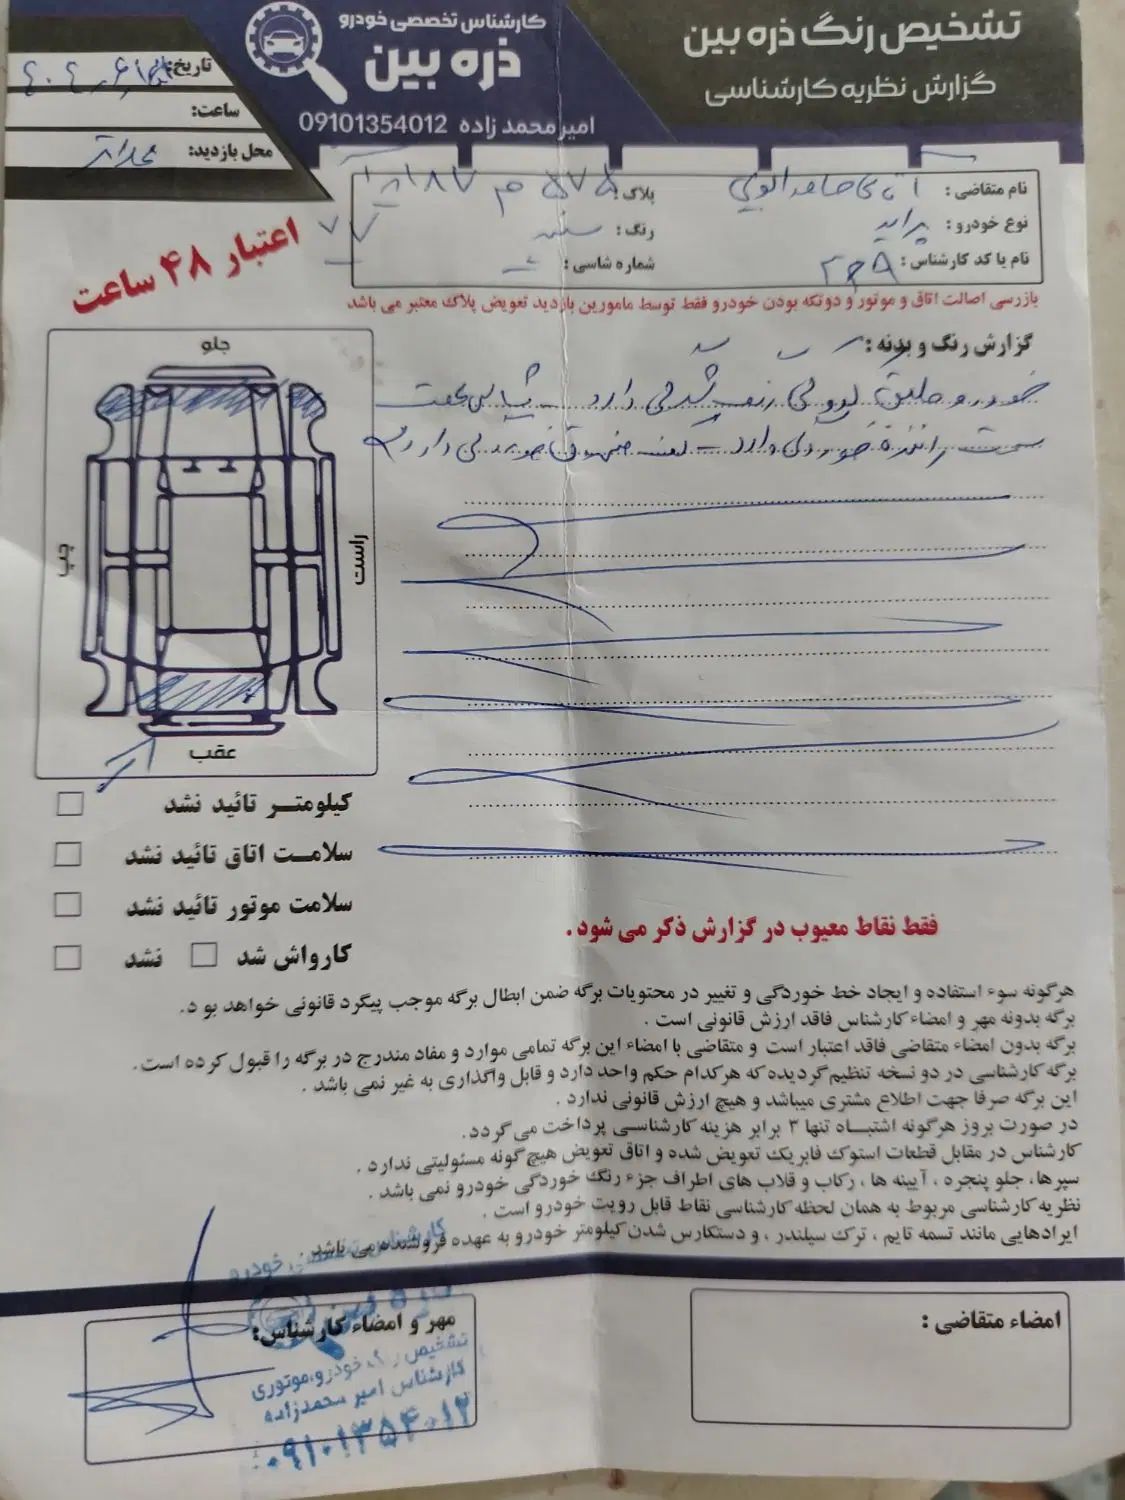 تشخیص رنگ ذره بین
گزارش نظریه کارشناسی
کارشناس تخصصی خودرو
ذره بین
امیرمحمد زاده 09101354012
تاریخ:
ساعت:
محل بازدید:
نام متقاضی: آقای
پلاک: ۵۷۵ م ۸۷ ایران ۷۷
نوع خودرو: پراید
رنگ: سفید
نام یا کد کارشناس:
شماره شاسی:
اعتبار ۴۸ ساعت
بازرسی اصالت اتاق و موتور و دوتکه بودن خودرو فقط توسط مامورین بازدید تعویض پلاک معتبر می باشد
گزارش رنگ و بدنه:
خودرو طبق کروکی رنگ شدگی دارد - شاسی عقب
سمت راننده خوردگی دارد - کف صندوق خوردگی دارد
جلو
چپ
راست
عقب
کیلومتر تائید نشد
سلامت اتاق تائید نشد
سلامت موتور تائید نشد
کارواش شد نشد
فقط نقاط معیوب در گزارش ذکر می شود.
هرگونه سوء استفاده و ایجاد خط خوردگی و تغییر در محتویات برگه ضمن ابطال برگه موجب پیگرد قانونی خواهد بود.
برگه بدونه مهر و امضاء کارشناس فاقد ارزش قانونی است.
برگه بدون امضاء متقاضی فاقد اعتبار است و متقاضی با امضاء این برگه تمامی موارد و مفاد مندرج در برگه را قبول کرده است.
برگه کارشناسی در دو نسخه تنظیم گردیده که هرکدام حکم واحد دارد و قابل واگذاری به غیر نمی باشد.
این برگه صرفا جهت اطلاع مشتری میباشد و هیچ ارزش قانونی ندارد.
در صورت بروز هرگونه اشتباه تنها ۳ برابر هزینه کارشناسی پرداخت می گردد.
کارشناس در مقابل قطعات استوک فابریک تعویض شده و اتاق تعویض هیچ گونه مسئولیتی ندارد.
سپرها، جلو پنجره، آیینه ها، رکاب و قلاب های اطراف جزء رنگ خوردگی خودرو نمی باشد.
نظریه کارشناسی مربوط به همان لحظه کارشناسی نقاط قابل رویت خودرو است.
ایرادهایی مانند تسمه تایم، ترک سیلندر، و دستکارس شدن کیلومتر خودرو به عهده فروشنده می باشد.
امضاء متقاضی:
مهر و امضاء کارشناس:
کارشناس تخصصی خودرو
ذره بین
تشخیص رنگ خودرو، موتوری
کارشناس امیر محمدزاده
۰۹۱۰۱۳۵۴۰۱۲